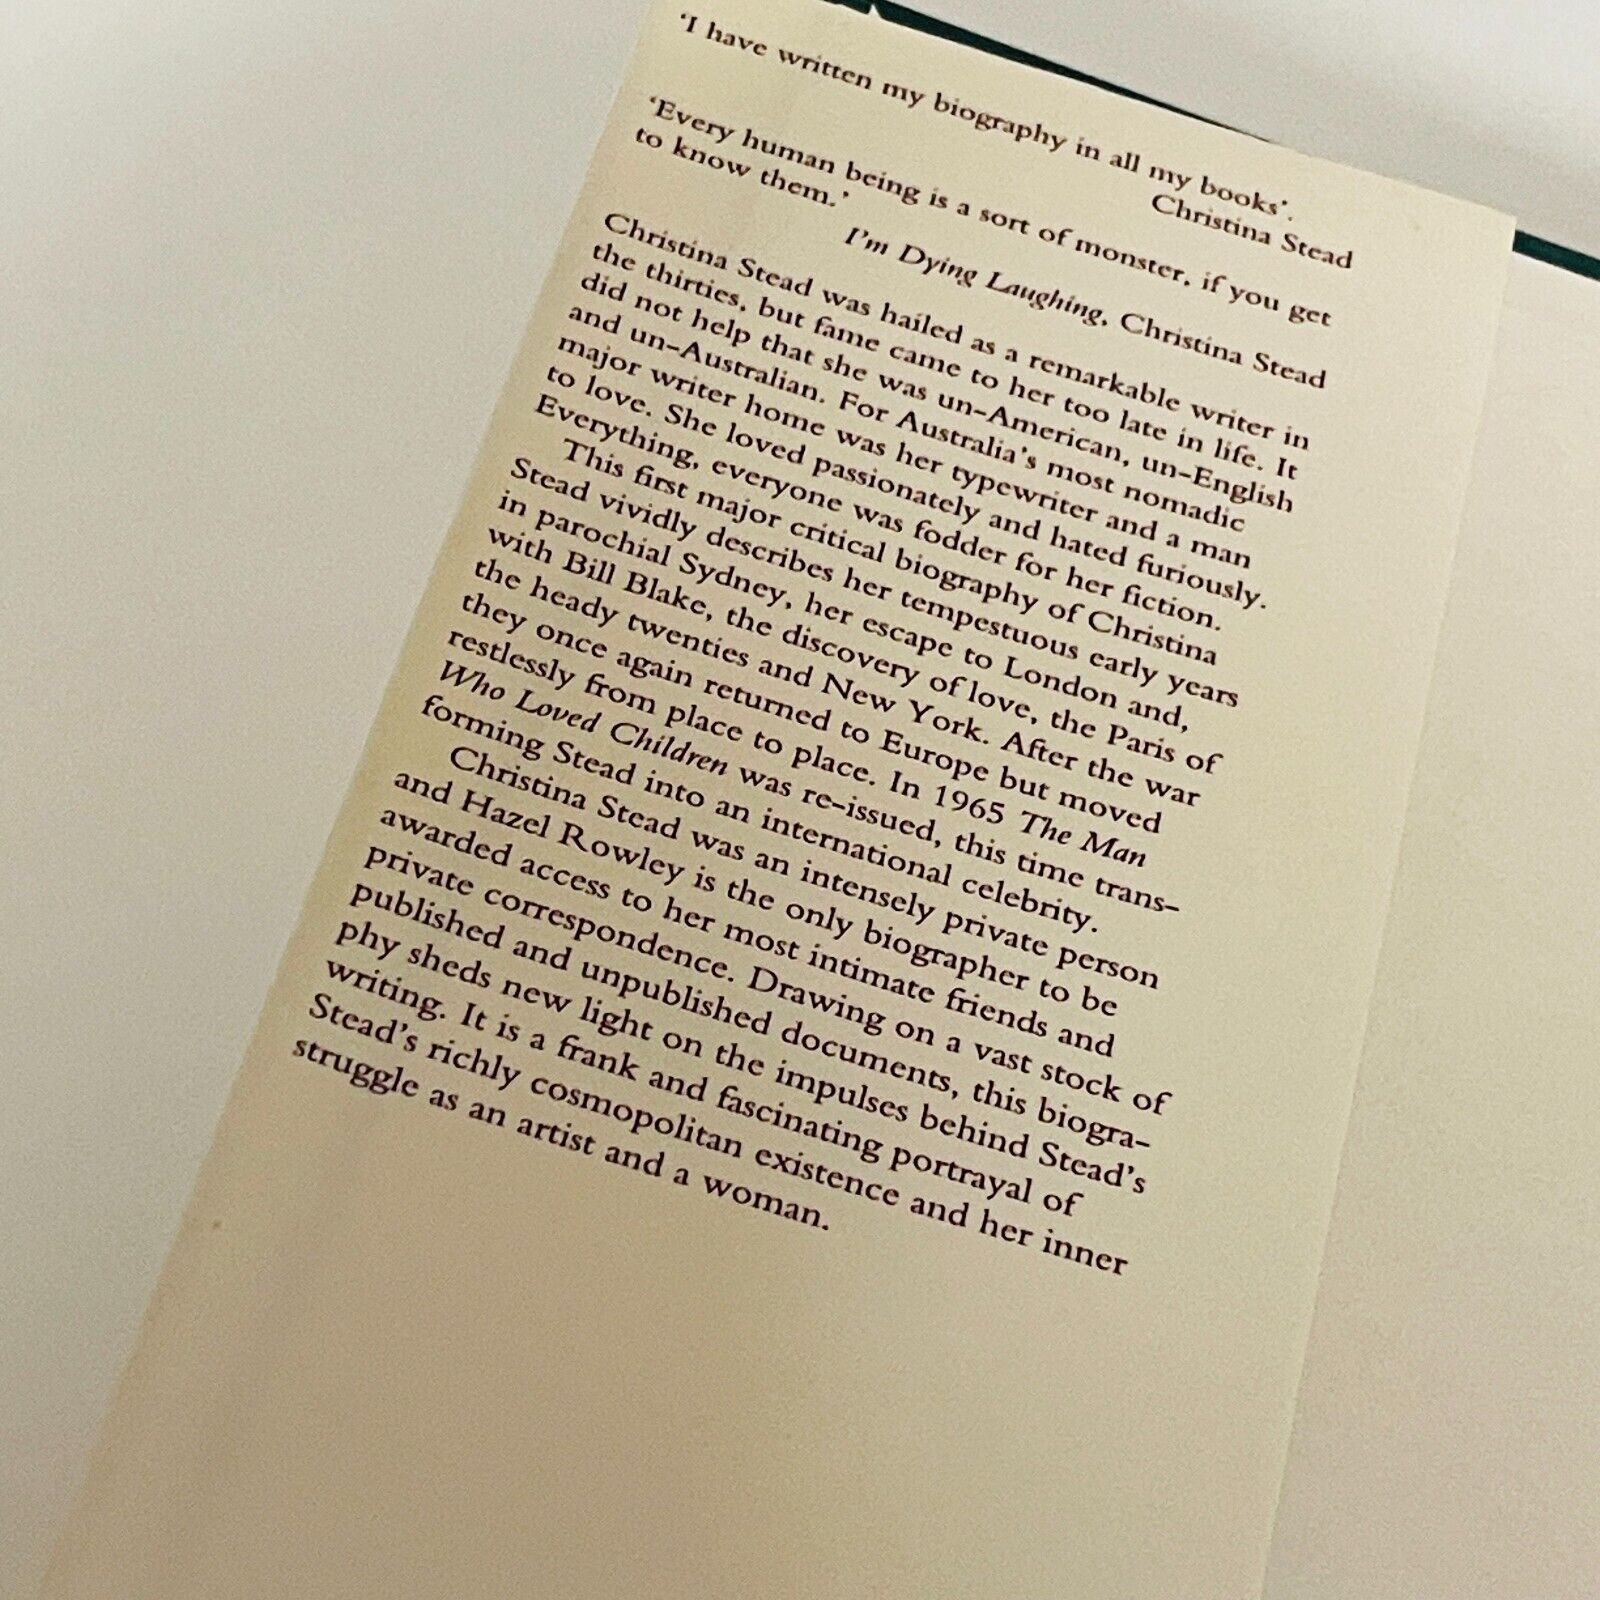 'I have written my biography in all my books'.
Christina Stead
'Every human being is a sort of monster, if you get
to know them.'
I'm Dying Laughing, Christina Stead
Christina Stead was hailed as a remarkable writer in
the thirties, but fame came to her too late in life. It
did not help that she was un-American, un-English
and un-Australian. For Australia's most nomadic
major writer home was her typewriter and a man
to love. She loved passionately and hated furiously.
Everything, everyone was fodder for her fiction.
This first major critical biography of Christina
Stead vividly describes her tempestuous early years
in parochial Sydney, her escape to London and,
with Bill Blake, the discovery of love, the Paris of
the heady twenties and New York. After the war
they once again returned to Europe but moved
restlessly from place to place. In 1965 The Man
Who Loved Children was re-issued, this time trans-
forming Stead into an international celebrity.
Christina Stead was an intensely private person
and Hazel Rowley is the only biographer to be
awarded access to her most intimate friends and
private correspondence. Drawing on a vast stock of
published and unpublished documents, this biogra-
phy sheds new light on the impulses behind Stead's
writing. It is a frank and fascinating portrayal of
Stead's richly cosmopolitan existence and her inner
struggle as an artist and a woman.